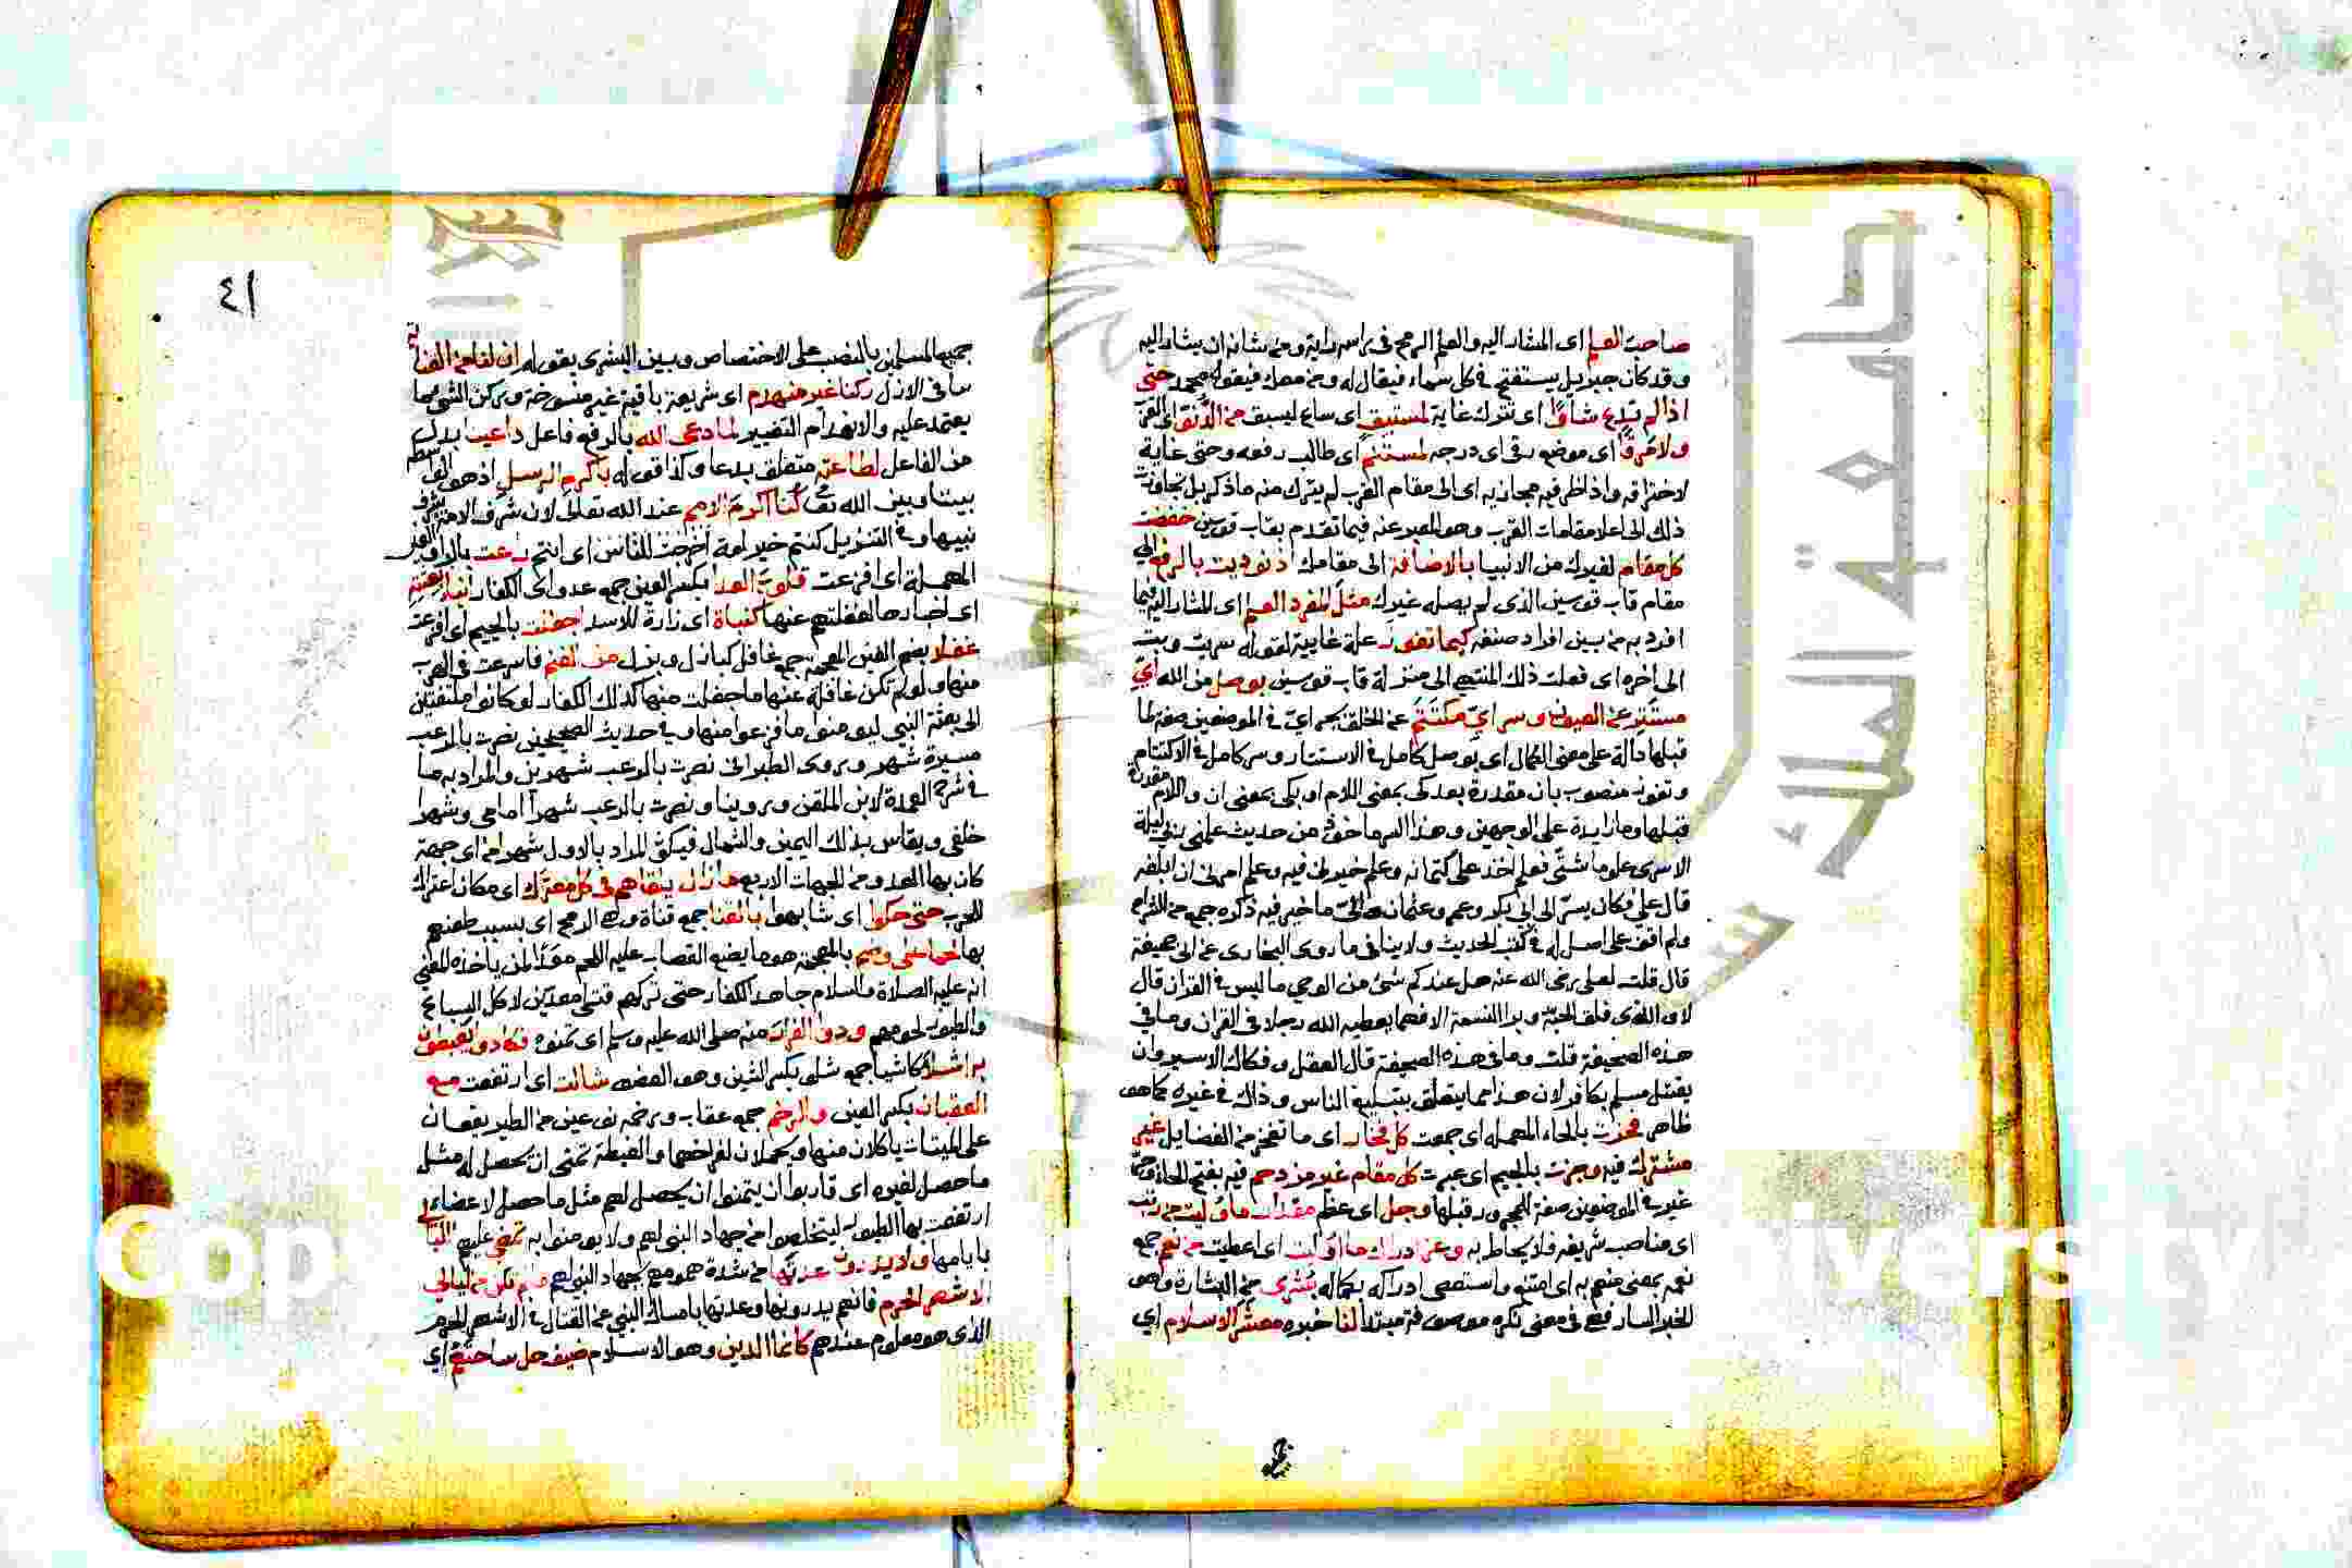 صاحب العلم اى المشار اليه والعلم الرمح فى راسه راية ومن شانه ان يشار اليه
وقد كان جبريل يستفتح فى كل سماء فيقال له ومن معك فيقول محمد حتى
اذا لم تدع شاوًا اى تترك غاية لمستبق اى ساع ليسبق من الدنو اى القرب
ولا مرقًا اى موضع رقى اى درجه لمستنم اى طالب رفعه وحتى غاية
لاختراقه واذا ظرفيه مجازيه اى الى مقام القرب لم يترك منه ما ذكر بل تجاوزت
ذلك الى اعلا مقامات القرب وهو المعبر عنه فيما تقدم بقاب قوسين خفضت
كل مقام لغيرك من الانبيا بالاضافة الى مقامك اذ نوديت بالرفع الى
مقام قاب قوسين الذى لم يصله غيرك مثل المفرد العلم اى المشار اليه فيما
افرد به من بين افراد صنفه كيما تفوز علة غاييه لقوله سريت وبت
الى اخره اى فعلت ذلك المنتهى الى منزلة قاب قوسين بوصل من الله اي
مستتر عن العيون وسر اي مكتتم عن الخلق بجر اي فى الموضعين صفة لما
قبلها دالة على معنى الكمال اى بوصل كامل فى الاستتار وسر كامل فى الاكتتام
وتفوز منصوب بان مقدرة بعد كى بمعنى اللام او بكى بمعنى ان واللام مقدرة
قبلها وما زايدة على الوجهين وهذا السر ماخوذ من حديث علمنى ربى ليلة
الاسرى علوما شتى فعلم اخذ على كتمانه وعلم خيرنى فيه وعلم امرنى ان ابلغه
قال على فكان يسر الى ابى بكر وعمر وعثمان والى ما خير فيه ذكره جمع من الشراح
ولم اقف على اصل له فى كتب الحديث ولا ينافى ما روى البخارى عن ابى جحيفة
قال قلت لعلى رضى الله عنه هل عندكم شئ من الوحي ما ليس فى القران قال
لا والذى فلق الحبة وبرا النسمة الا فهما يعطيه الله رجلا فى القران وما فى
هذه الصحيفة قلت وما فى هذه الصحيفة قال العقل وفكاك الاسير وان
يقتل مسلم بكافر لان هذا مما يتعلق بتبليغ الناس وذاك فى غيره كما هو
ظاهر فحزت بالحاء المهمله اى جمعت كل فخار اى ما تفخر من الفضايل غير
مشترك فيه وجزت بالجيم اى عبرت كل مقام غير مزدحم فيه بفتح الحاء
غير فى الموضعين صفة للمجرور قبلها وجل اى عظم مقدار ما وليت من رتب
اى مناصب شريفه فلا يحاط به وعز ادراك ما اوليت اى اعطيت من نعم جمع
نعمه بمعنى منعم به اى امتنع واستعصى ادراكه بكماله بشرى من البشارة وهو
الخبر السار فهى فى معنى نكره موصوفة مبتدا لنا خبره معشر الاسلام اي
٤١
جميع المسلمين بالنصب على الاختصاص وبين البشرى بقوله ان لنا من العناية
ما فى الازل ركنا غير منهدم اى شريعة باقية غير منسوخة وركن الشئ ما
يعتمد عليه والانهدام التغيير لما دعى الله بالرفع فاعل داعينا بدل
من الفاعل لطاعته متعلق بدعا وكذا قوله باكرم الرسل اذ هو الواسطه
بيننا وبين الله تع كنا اكرم الامم عند الله تعالى لان شرف الامة بشرف
نبيها وفى التنزيل كنتم خير امة اخرجت للناس اى انتم راعت بالرا والعين
المهملة اى افزعت قلوب العدا بكسر العين جمع عدو اى الكفار انباء بعثته
اى اخبارها لغفلتهم عنها كنباة اى زارة للاسد اجفلت بالجيم اى افزعت
غفلا بضم الغين المعجمه جمع غافل كبازل وبزل من الغنم فاسرعت فى الهرب
منها ولو لم تكن غافلة عنها ما جفلت منها كذلك الكفار لو كانوا ملتفتين
الى بعثة النبي ليومنوا ما فزعوا منها وفى حديث الصحيحين نصرت بالرعب
مسيرة شهر وروى الطبرانى نصرت بالرعب شهرين والمراد به ما
فى شرح العمدة لابن الملقن وروينا ونصرت بالرعب شهرا امامى وشهرا
خلفى ويقاس بذلك اليمين والشمال فيكون المراد بالاول شهرا من اى جهة
كان بها العدو من الجهات الاربع ما زال يلقاهم فى كل معترك اى مكان اعتراك
للحرب حتى حكوا اى شابهوا بالقنا جمع قناة وهى الرمح اى بسبب طعنهم
بها لحما على وضم بالمعجمة هو ما يضع القصاب عليه اللحم معدًا لمن ياخذه المعنى
انه عليه الصلاة والسلام جاهد الكفار حتى تركهم قتلى معدين لاكل السباع
والطيور لحومهم ودوا الفرار منه صلى الله عليه وسلم اى تمنوه فكادوا يغبطون
به اشلا كاشيا جمع شلو بكسر الشين وهو العضو شالت اى ارتفعت مع
العقبان بكسر العين والرخم جمع عقاب ورخمه نوعين من الطير يقعان
على الميتات ياكلان منها ويحملان لفراخهما والغبطة تمنى ان يحصل له مثل
ما حصل لغيره اى قاربوا ان يتمنوا ان يحصل لهم مثل ما حصل لاعضاء
ارتفعت بها الطيور ليتخلصوا من جهاد النبى لهم ولا يومنوا به تمضى عليهم الليالى
بايامها ولا يدرون عدتها من شدة همومهم بجهاد النبى لهم ما لم تكن من ليالى
الاشهر الحرم فانهم يدرونها وعدتها بامساك النبى عن القتال فى الاشهر الحرم
الذى هو معلوم عندهم كانما الدين وهو الاسلام ضيف حل ساحتهم اي